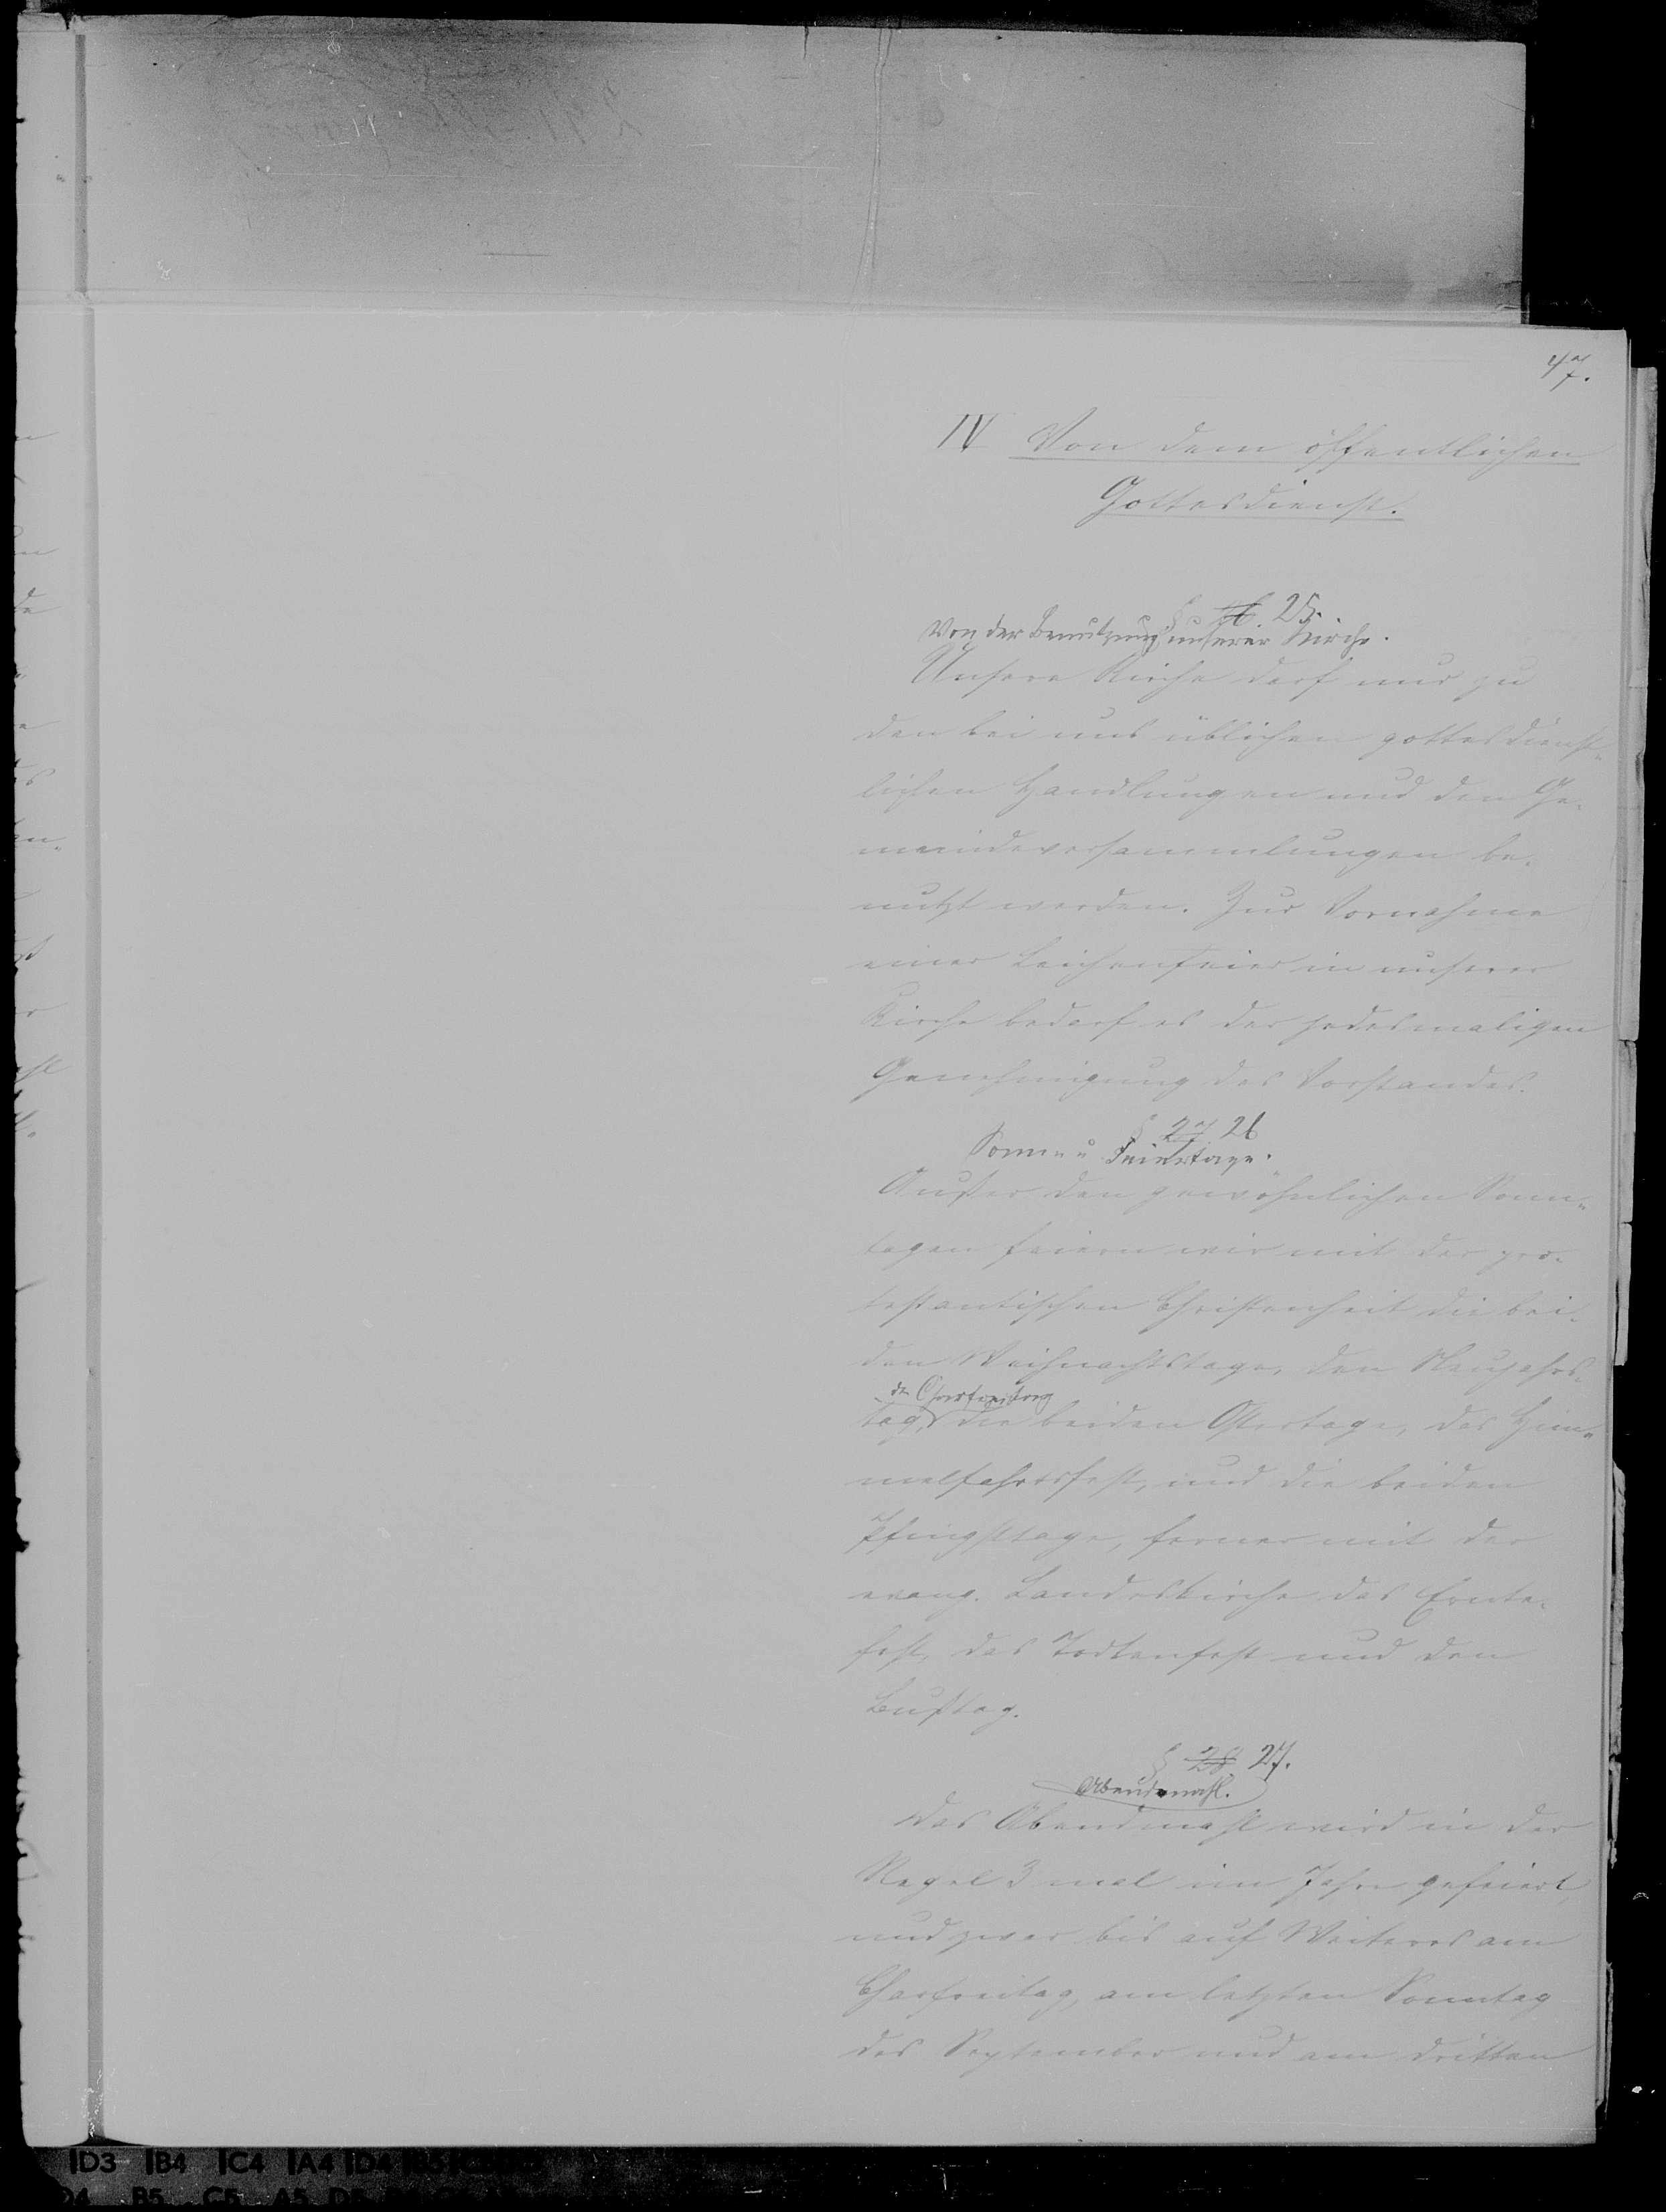 47.
IV Von dem öffentlichen
Gottesdienst.
§ 26 25.
Von der Benutzung unserer Kirche.
Unsere Kirche darf nur zu
den bei uns üblichen gottesdienst-
lichen Handlungen und den Ge-
meindeversammlungen be-
nutzt werden. Zur Vornahme
einer Leichenfeier in unserer
Kirche bedarf es der jedesmaligen
Genehmigung des Vorstandes.
§ 27 26
Sonn- u Feiertage.
Außer den gewöhnlichen Sonn-
tagen feiern wir mit der pro-
testantischen Christenheit die bei-
den Weihnachtstage, den Neujahrs-
dn Charfreitag
tag, die beiden Ostertage, das Him-
melfahrtsfest, und die beiden
Pfingsttage, ferner mit der
evang. Landeskirche das Ernte-
fest, das Todtenfest und den
Bußtag.
§ 28 27.
Abendmahl.
Das Abendmahl wird in der
Regel 3 mal im Jahre gefeiert
und zwar bis auf Weiteres am
Charfreitag, am letzten Sonntag
des September und am dritten
D3 B4 C4 A4 D4
D4 B5 C5 A5 D5